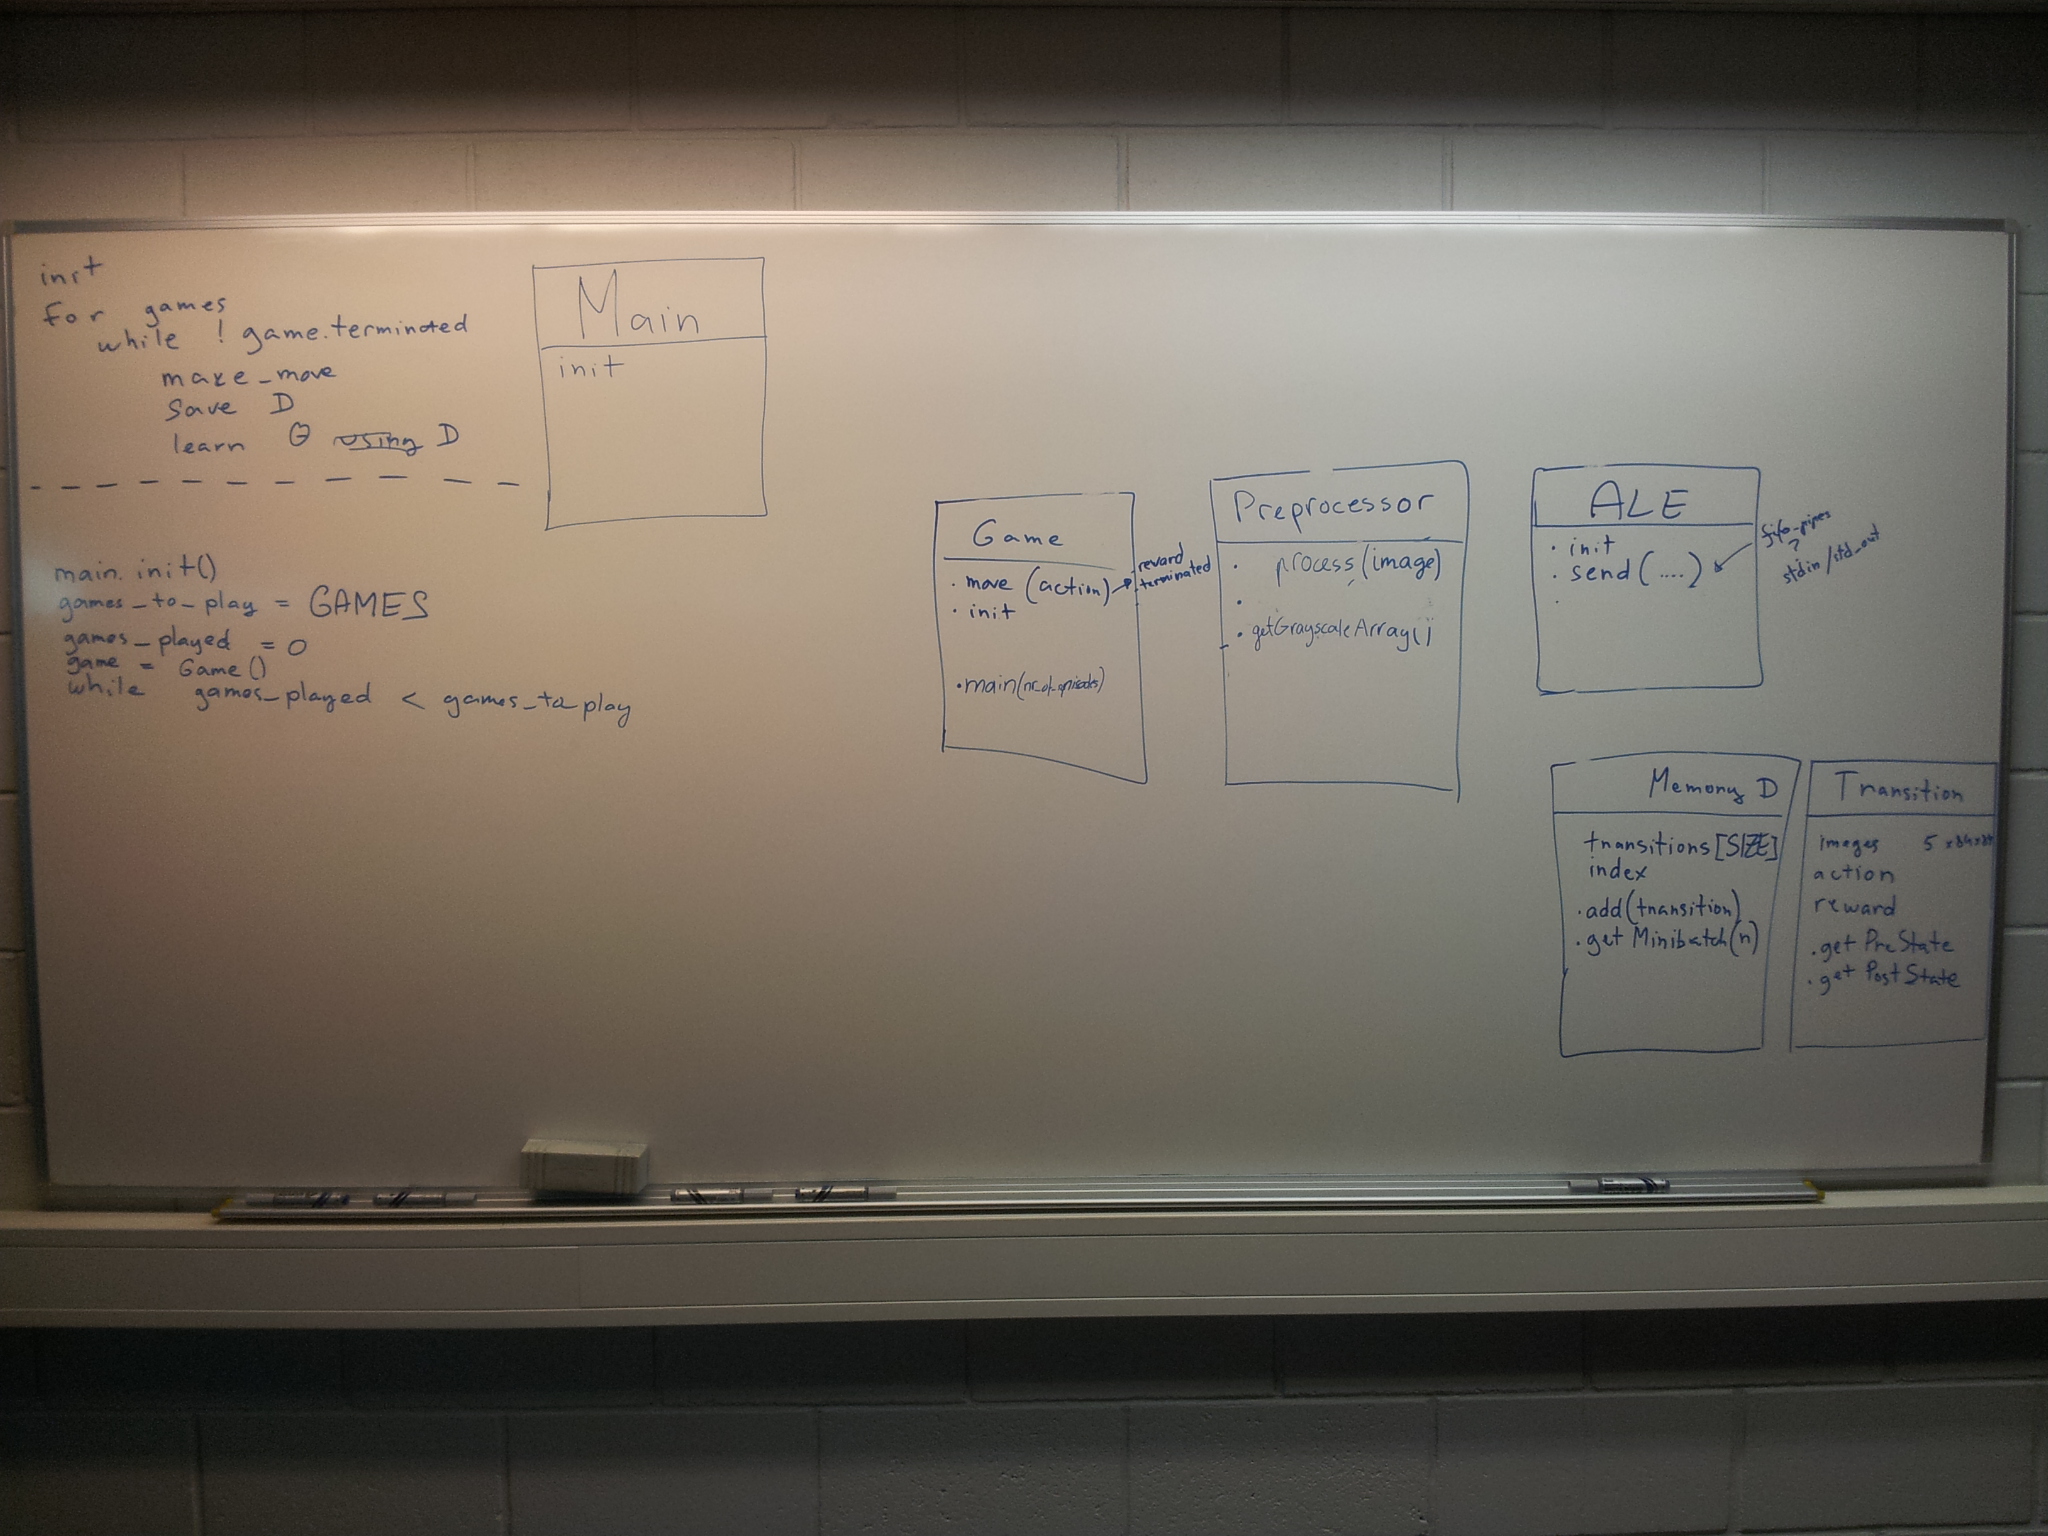 init
for games
while ! game.terminated
make_move
save D
learn Θ using D
main.init()
games_to_play = GAMES
games_played = 0
game = Game()
while games_played < games_to_play
Main
init
Game
· move (action) → reward
terminated
· init
· main(nr_of_episodes)
Preprocessor
· process(image)
·
· getGrayscaleArray()
ALE
· init
· send(....)
·
fifo-pipes
?
stdin/std_out
Memory D
transitions[SIZE]
index
· add(transition)
· get Minibatch(n)
Transition
images 5 x84x84
action
reward
· get PreState
· get PostState